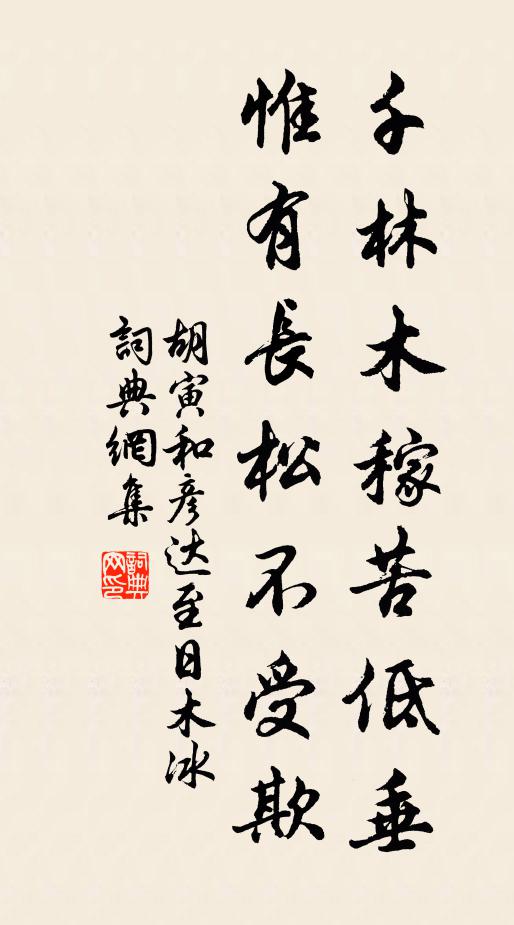 千林木稼苦低垂
惟有長松不受欺
胡寅和彥达至日木冰
詞典網集
詞典网印